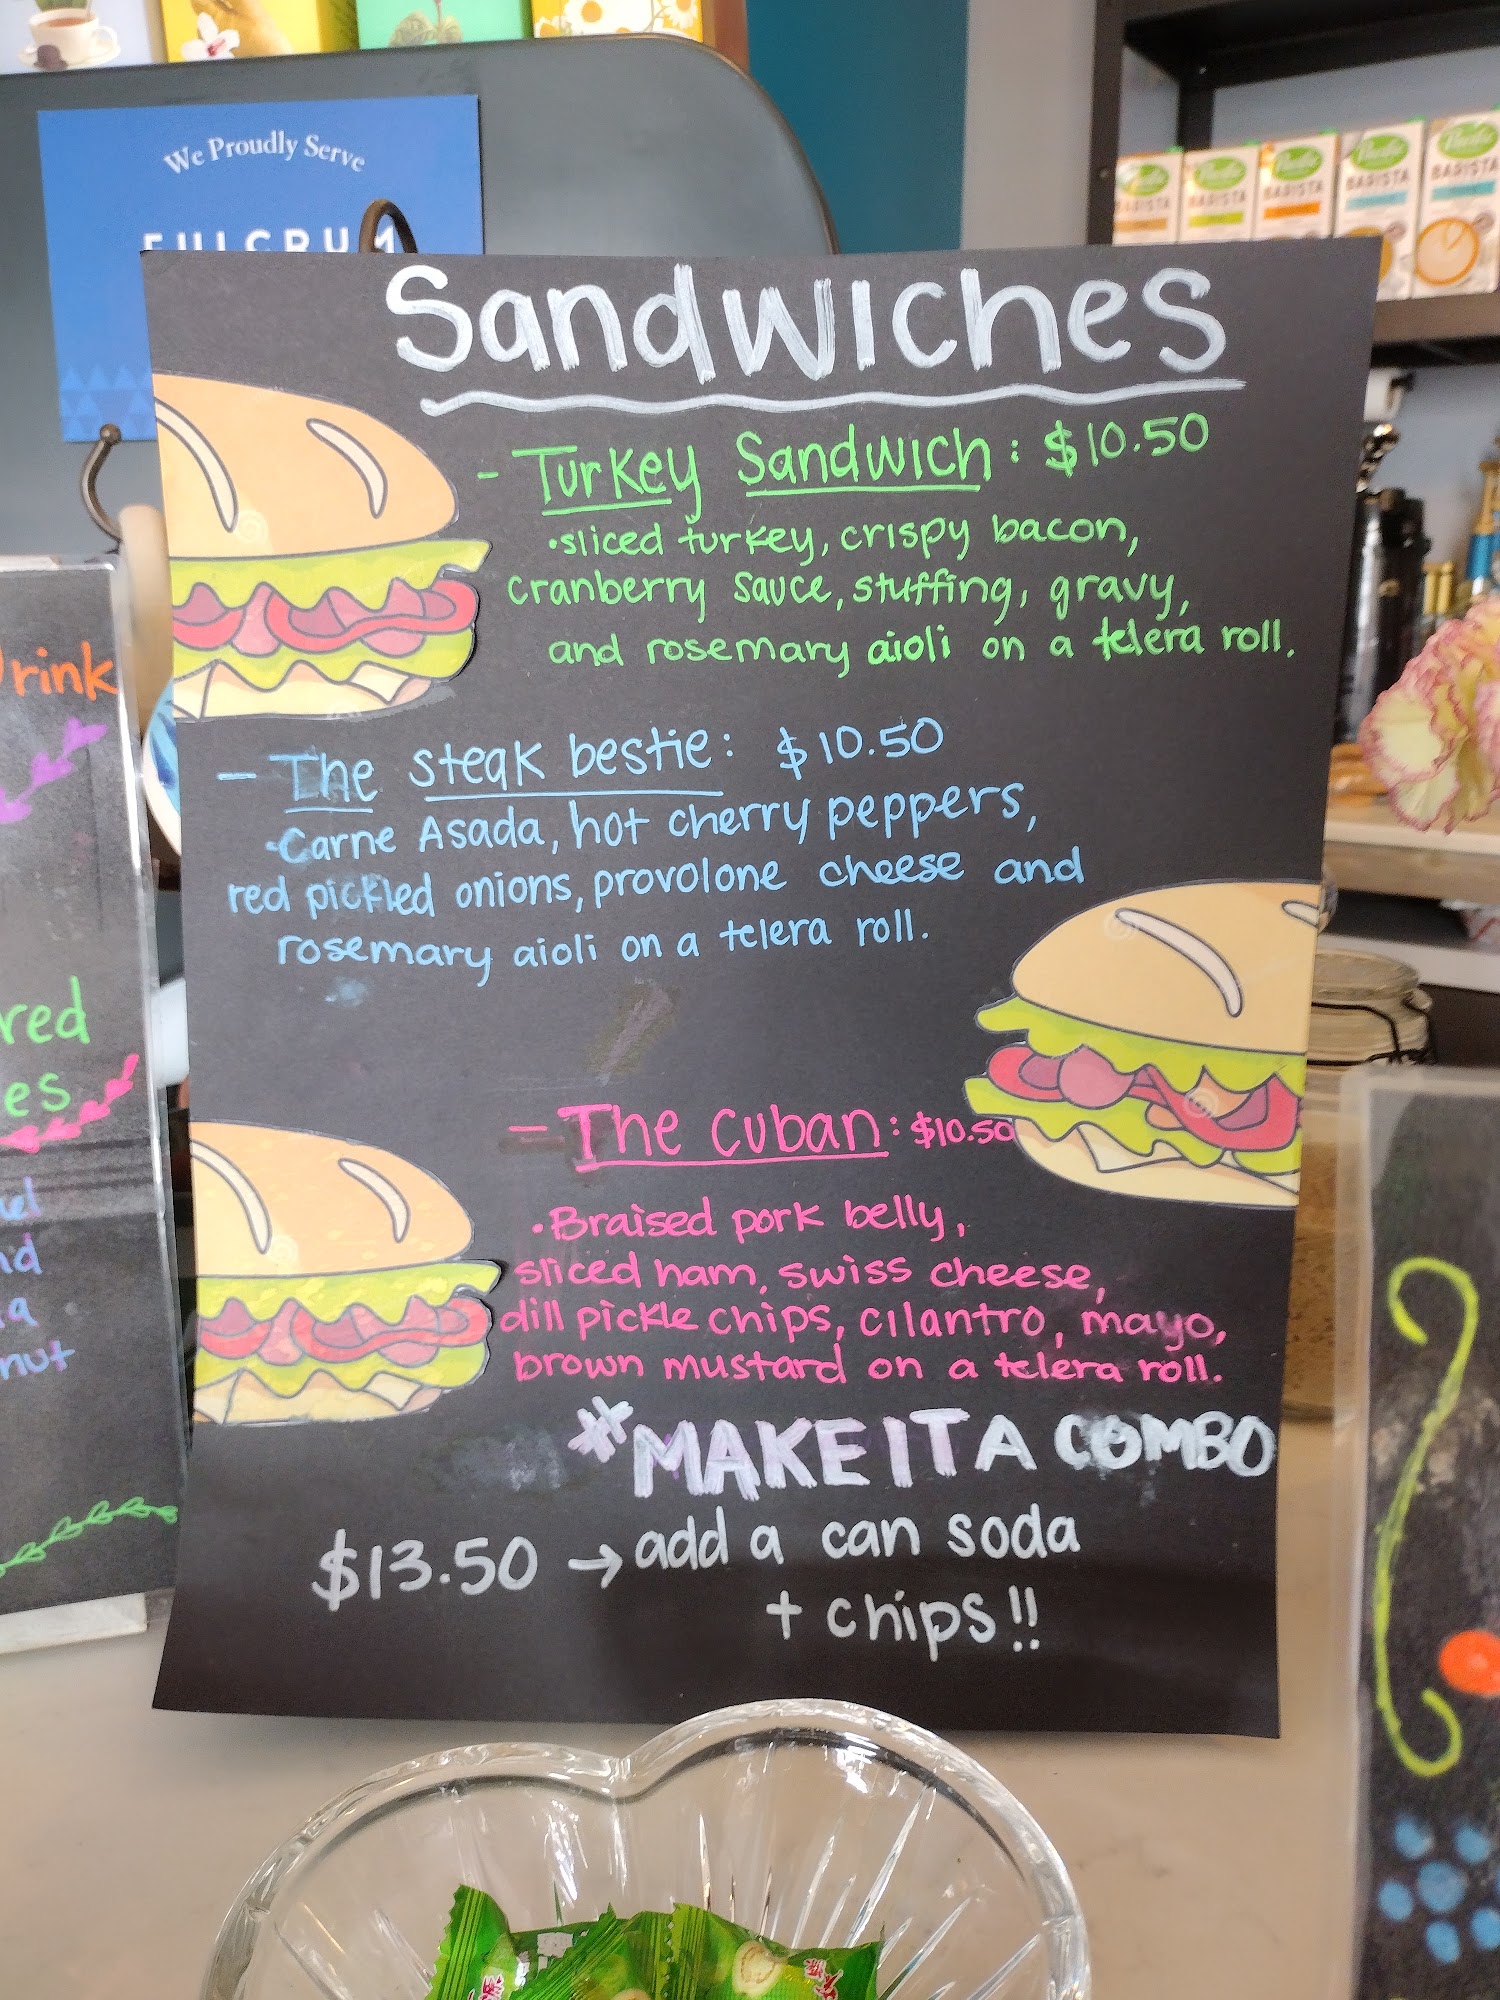 We Proudly Serve
FULCRUM
Sandwiches
- Turkey Sandwich: $10.50
•sliced turkey, crispy bacon,
cranberry sauce, stuffing, gravy,
and rosemary aioli on a telera roll.
- The steak bestie: $10.50
•Carne Asada, hot cherry peppers,
red pickled onions, provolone cheese and
rosemary aioli on a telera roll.
- The Cuban: $10.50
•Braised pork belly,
sliced ham, swiss cheese,
dill pickle chips, cilantro, mayo,
brown mustard on a telera roll.
#MAKE IT A COMBO
$13.50 → add a can soda
+ chips!!
Drink
red
es
nd
a
nut
Pacific
BARISTA
Pacific
BARISTA
Pacific
BARISTA
Pacific
BARISTA
Pacific
BARISTA